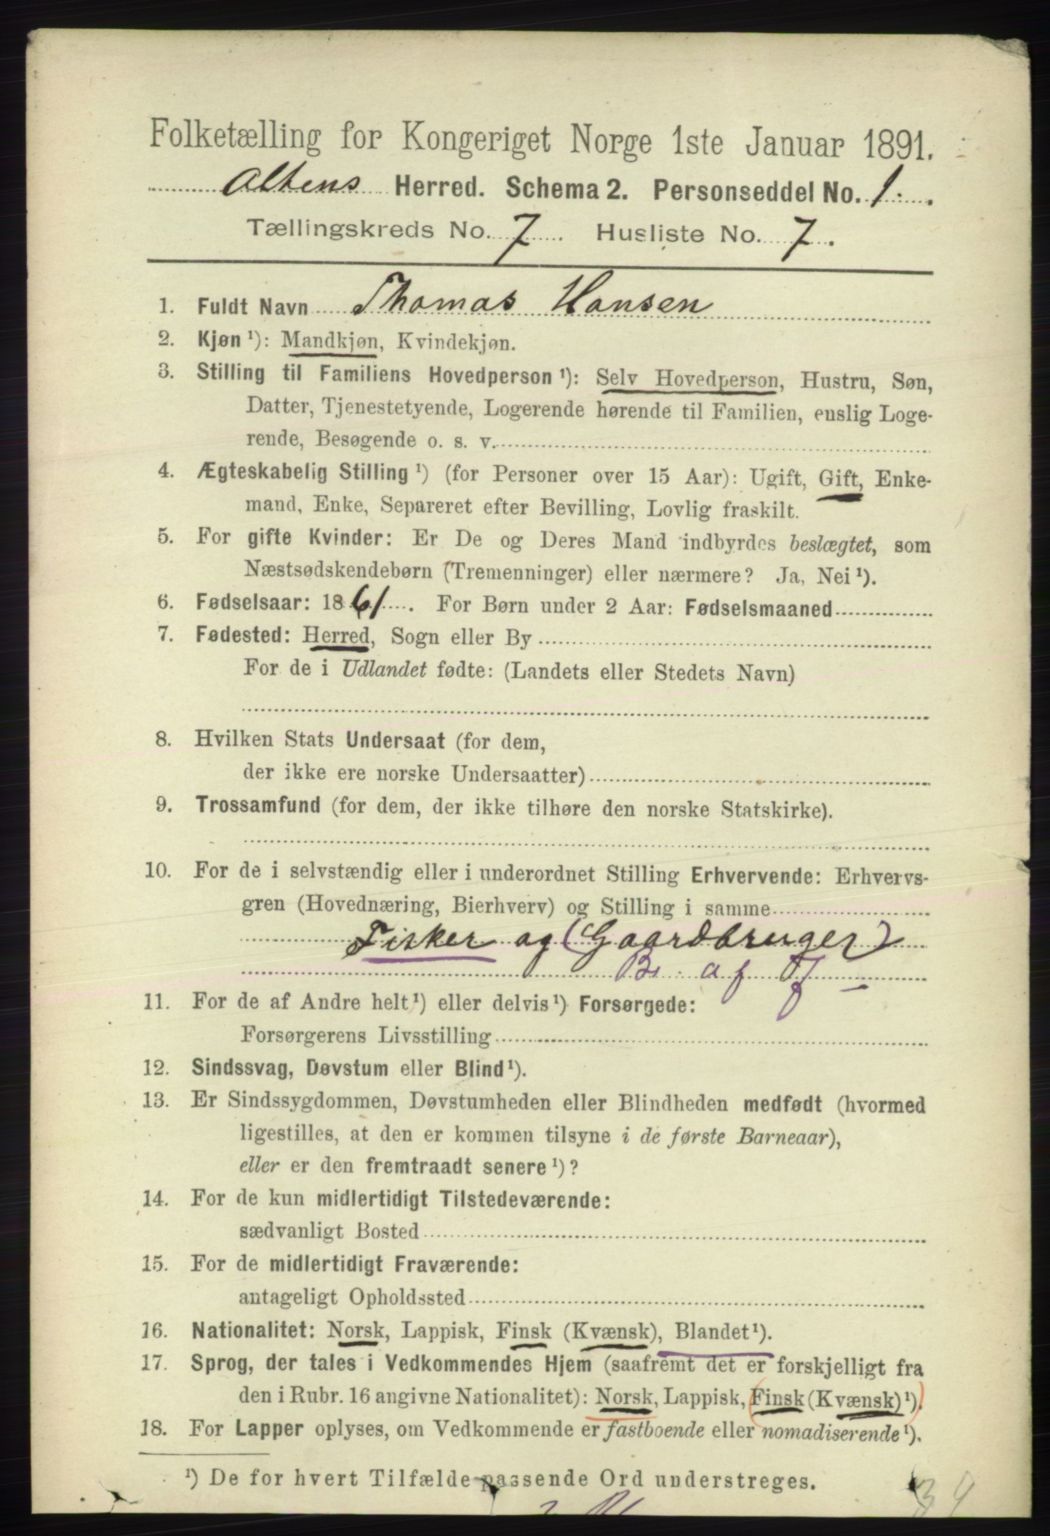 Folketælling for Kongeriget Norge 1ste Januar 1891.
Altens Herred. Schema 2. Personseddel No. 1.
Tællingskreds No. 7. Husliste No. 7.
1. Fuldt Navn Thomas Hansen
2. Kjøn ¹): Mandkjøn, Kvindekjøn.
3. Stilling til Familiens Hovedperson ¹): Selv Hovedperson, Hustru, Søn,
Datter, Tjenestetyende, Logerende hørende til Familien, enslig Loge-
rende, Besøgende o. s. v.
4. Ægteskabelig Stilling ¹) (for Personer over 15 Aar): Ugift, Gift, Enke-
mand, Enke, Separeret efter Bevilling, Lovlig fraskilt.
5. For gifte Kvinder: Er De og Deres Mand indbyrdes beslægtet, som
Næstsødskendebørn (Tremenninger) eller nærmere? Ja, Nei ¹).
6. Fødselsaar: 1861. For Børn under 2 Aar: Fødselsmaaned
7. Fødested: Herred, Sogn eller By
For de i Udlandet fødte: (Landets eller Stedets Navn)
8. Hvilken Stats Undersaat (for dem,
der ikke ere norske Undersaatter)
9. Trossamfund (for dem, der ikke tilhøre den norske Statskirke).
10. For de i selvstændig eller i underordnet Stilling Erhvervende: Erhvervs-
gren (Hovednæring, Bierhverv) og Stilling i samme
Fisker og (Gaardbruger)
B. af f
11. For de af Andre helt ¹) eller delvis ¹) Forsørgede:
Forsørgerens Livsstilling
12. Sindssvag, Døvstum eller Blind ¹).
13. Er Sindssygdommen, Døvstumheden eller Blindheden medfødt (hvormed
ligestilles, at den er kommen tilsyne i de første Barneaar),
eller er den fremtraadt senere ¹)?
14. For de kun midlertidigt Tilstedeværende:
sædvanligt Bosted
15. For de midlertidigt Fraværende:
antageligt Opholdssted
16. Nationalitet: Norsk, Lappisk, Finsk (Kvænsk), Blandet ¹).
17. Sprog, der tales i Vedkommendes Hjem (saafremt det er forskjelligt fra
den i Rubr. 16 angivne Nationalitet): Norsk, Lappisk, Finsk (Kvænsk) ¹).
18. For Lapper oplyses, om Vedkommende er fastboende eller nomadiserende ¹).
¹) De for hvert Tilfælde passende Ord understreges.